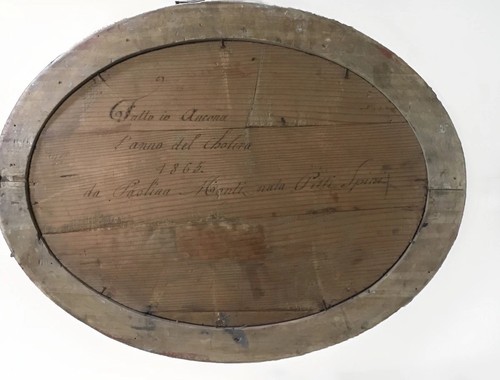 Fatto in Ancona
l'anno del Cholera
1865.
da Paolina Monti nata Pisti